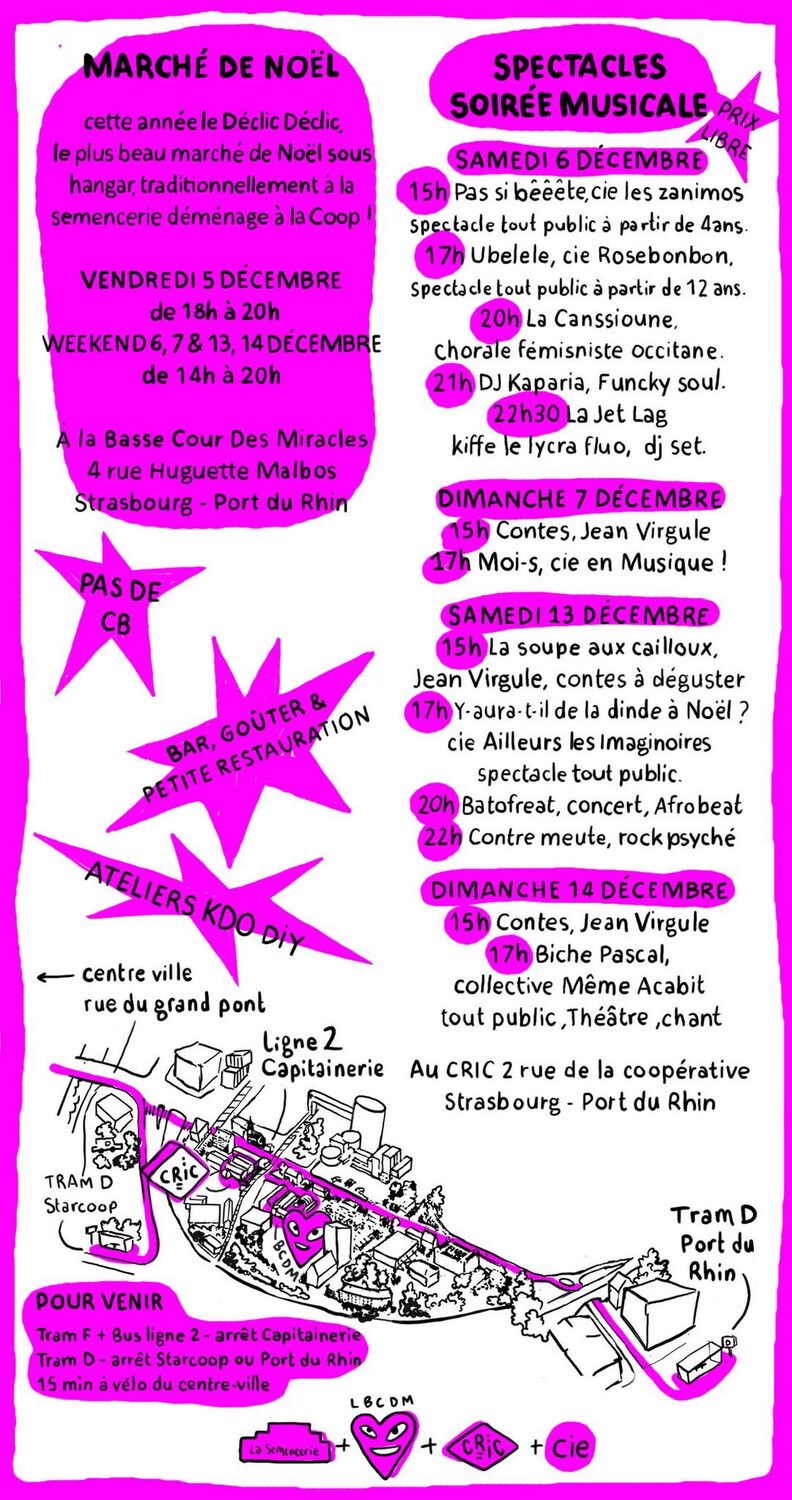 MARCHÉ DE NOËL
cette année le Déclic Déclic,
le plus beau marché de Noël sous
hangar, traditionnellement à la
semencerie déménage à la Coop !
VENDREDI 5 DÉCEMBRE
de 18h à 20h
WEEKEND 6, 7 & 13, 14 DÉCEMBRE
de 14h à 20h
À la Basse Cour Des Miracles
4 rue Huguette Malbos
Strasbourg - Port du Rhin
PAS DE
CB
BAR, GOÛTER &
PETITE RESTAURATION
ATELIERS KDO DiY
SPECTACLES
SOIRÉE MUSICALE
PRIX
LIBRE
SAMEDI 6 DÉCEMBRE
15h Pas si bêêête, cie les zanimos
Spectacle tout public à partir de 4ans.
17h Ubelele, cie Rosebonbon,
Spectacle tout public à partir de 12 ans.
20h La Canssioune,
chorale fémisniste occitane.
21h DJ Kaparia, Funcky soul.
22h30 La Jet Lag
kiffe le lycra fluo, dj set.
DIMANCHE 7 DÉCEMBRE
15h Contes, Jean Virgule
17h Moi-s, cie en Musique !
SAMEDI 13 DÉCEMBRE
15h La soupe aux cailloux,
Jean Virgule, contes à déguster
17h Y-aura-t-il de la dinde à Noël ?
cie Ailleurs les Imaginoires
spectacle tout public.
20h Batofreat, concert, Afrobeat
22h Contre meute, rock psyché
DIMANCHE 14 DÉCEMBRE
15h Contes, Jean Virgule
17h Biche Pascal,
collective Même Acabit
tout public ,Théâtre ,chant
Au CRIC 2 rue de la coopérative
Strasbourg - Port du Rhin
← centre ville
rue du grand pont
Ligne 2
Capitainerie
CRIC
TRAM D
Starcoop
BCDM
Tram D
Port du
Rhin
POUR VENIR
Tram F + Bus ligne 2 - arrêt Capitainerie
Tram D - arrêt Starcoop ou Port du Rhin
15 min à vélo du centre-ville
LBCDM
La Semencerie + + CRIC + cie